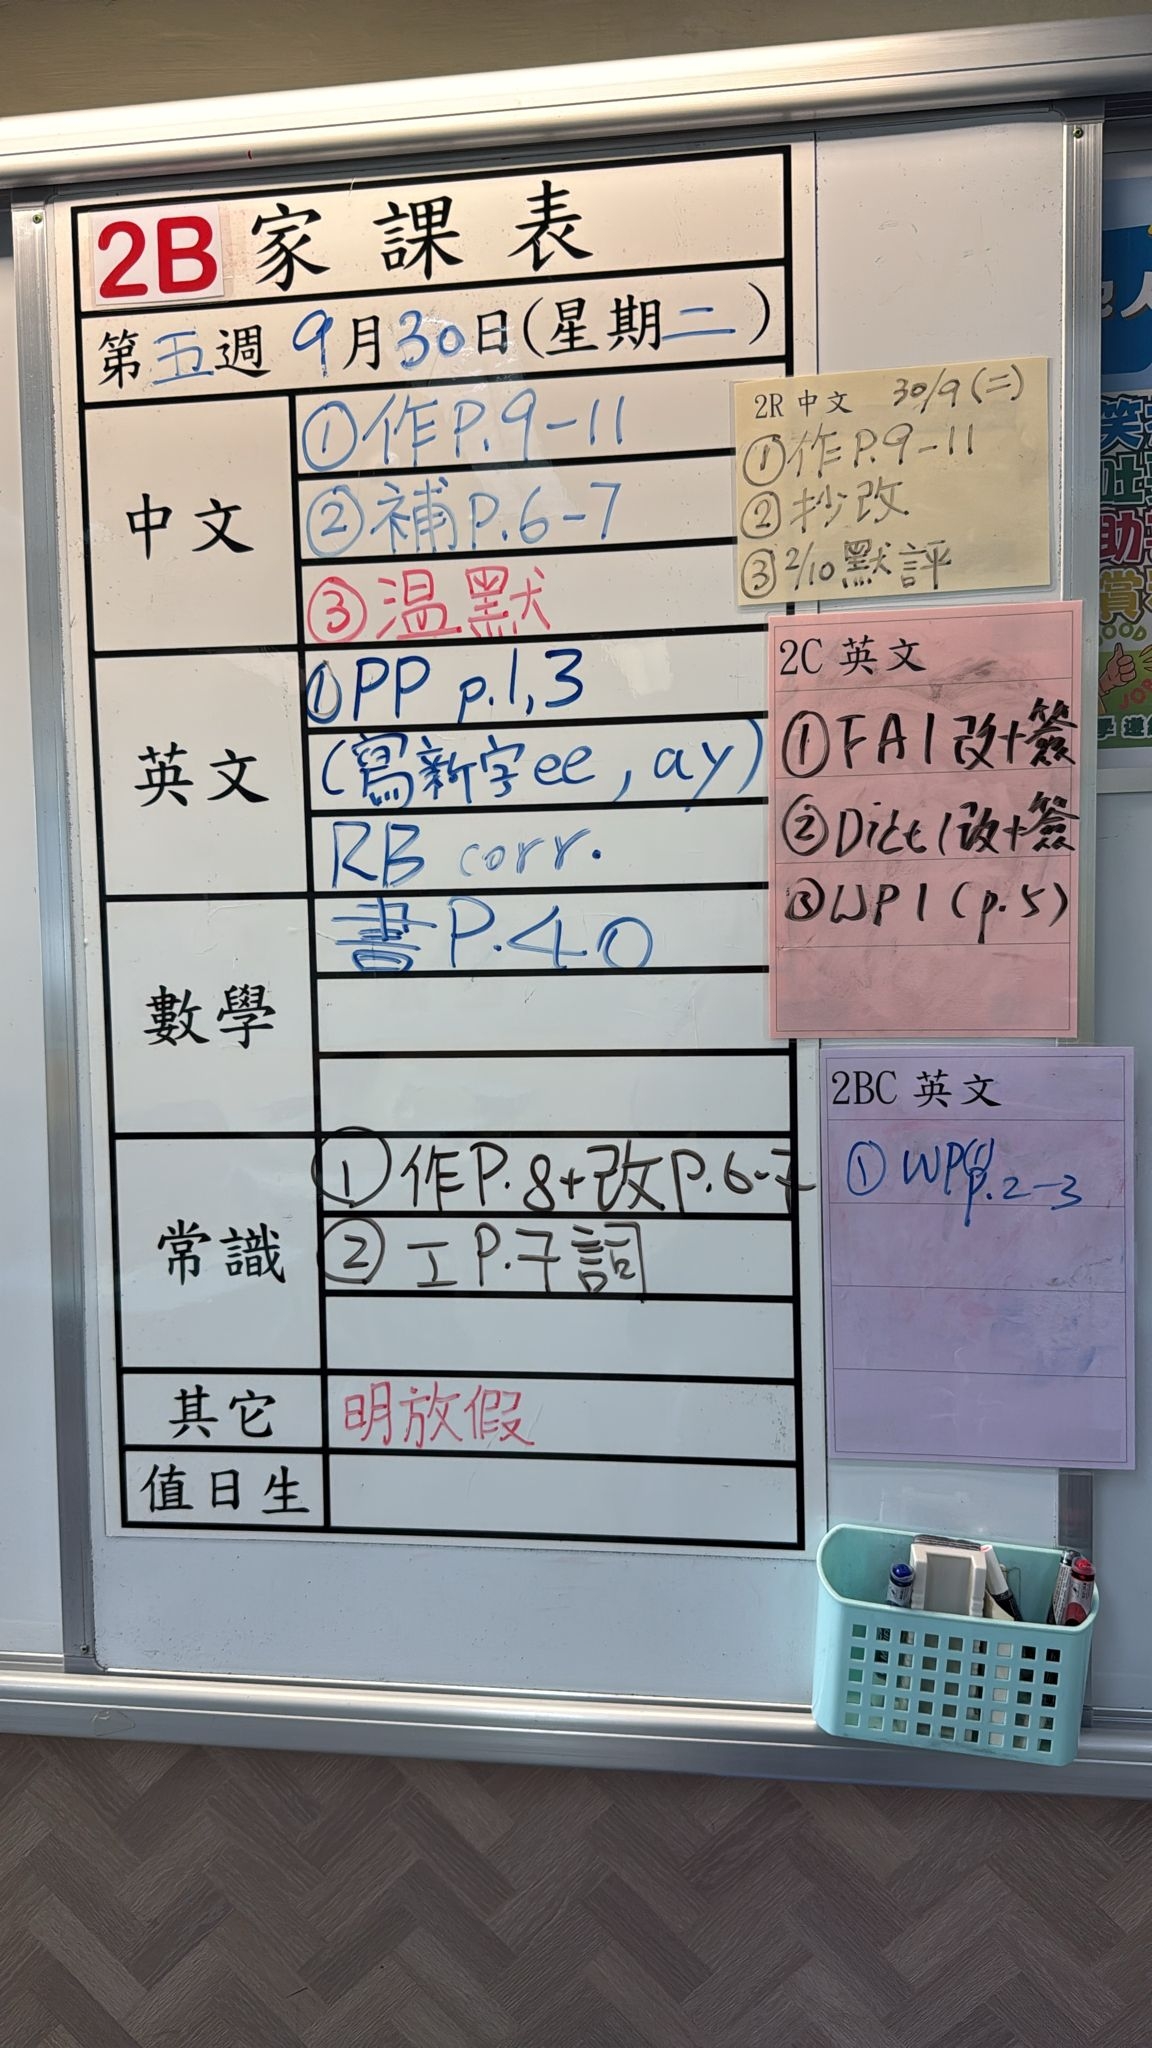 2B 家課表
第五週 9月30日(星期二)
中文
①作P.9-11
②補P.6-7
③温默
英文
①PP p.1,3
(寫新字ee, ay)
RB corr.
數學
書P.40
常識
①作P.8+改P.6-7
②工P.7詞
其它
明放假
值日生
2R 中文 30/9(二)
①作P.9-11
②抄改
③2/10默評
2C 英文
①FA1改+簽
②Dict1改+簽
③WP1(p.5)
2BC 英文
①WP p.2-3
笑
助
賞
GOOD